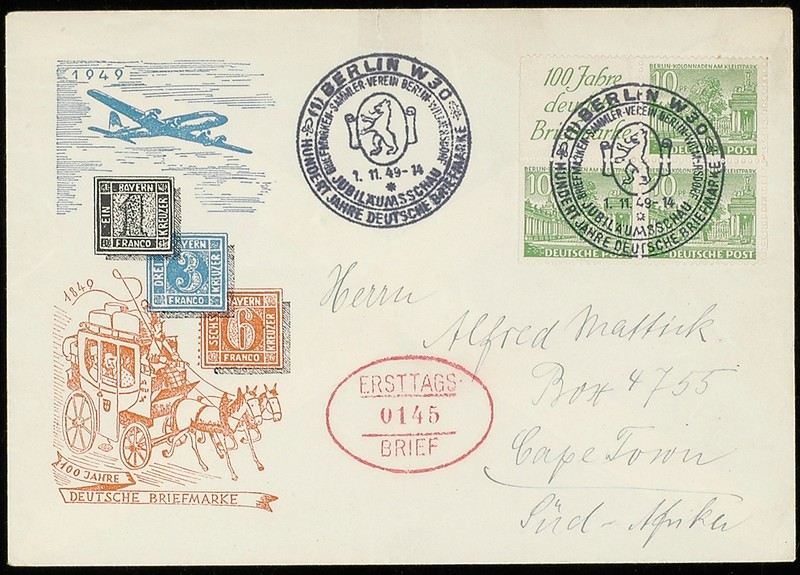 1949
BAYERN
EIN
1
KREUZER
FRANCO
BAYERN
DREI
3
KREUZER
FRANCO
BAYERN
SECHS
6
KREUZER
FRANCO
1849
100 JAHRE
DEUTSCHE BRIEFMARKE
(1) BERLIN W30
BRIEFMARKEN-SAMMLER-VEREIN BERLIN-
1. 11. 49-14
JUBILÄUMSSCHAU
HUNDERT JAHRE DEUTSCHE BRIEFMARKE
100 Jahre
deutsche
Briefmarke
BERLIN-KOLONNADEN AM KLEISTPARK
10
DEUTSCHE POST
10
DEUTSCHE POST
10
DEUTSCHE POST
(1) BERLIN W30
BRIEFMARKEN-SAMMLER-VEREIN BERLIN-
1. 11. 49-14
JUBILÄUMSSCHAU
HUNDERT JAHRE DEUTSCHE BRIEFMARKE
Herrn
Alfred Mattick
Box 4755
Cape Town
Süd-Afrika
ERSTTAGS-
0145
BRIEF